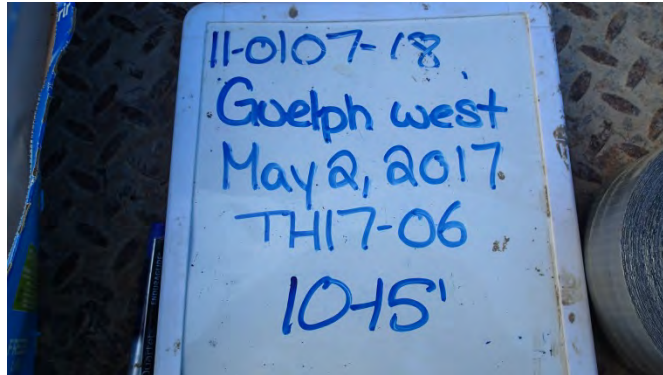 11-0107-18
Guelph west
May 2, 2017
TH17-06
10-15'